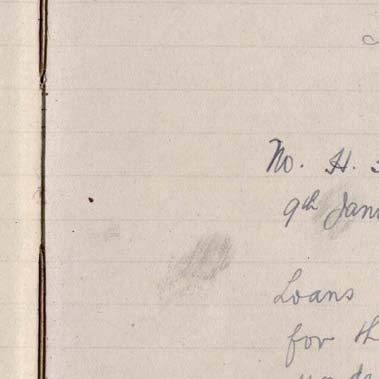 No. H.
9th Jan
Loans
for th